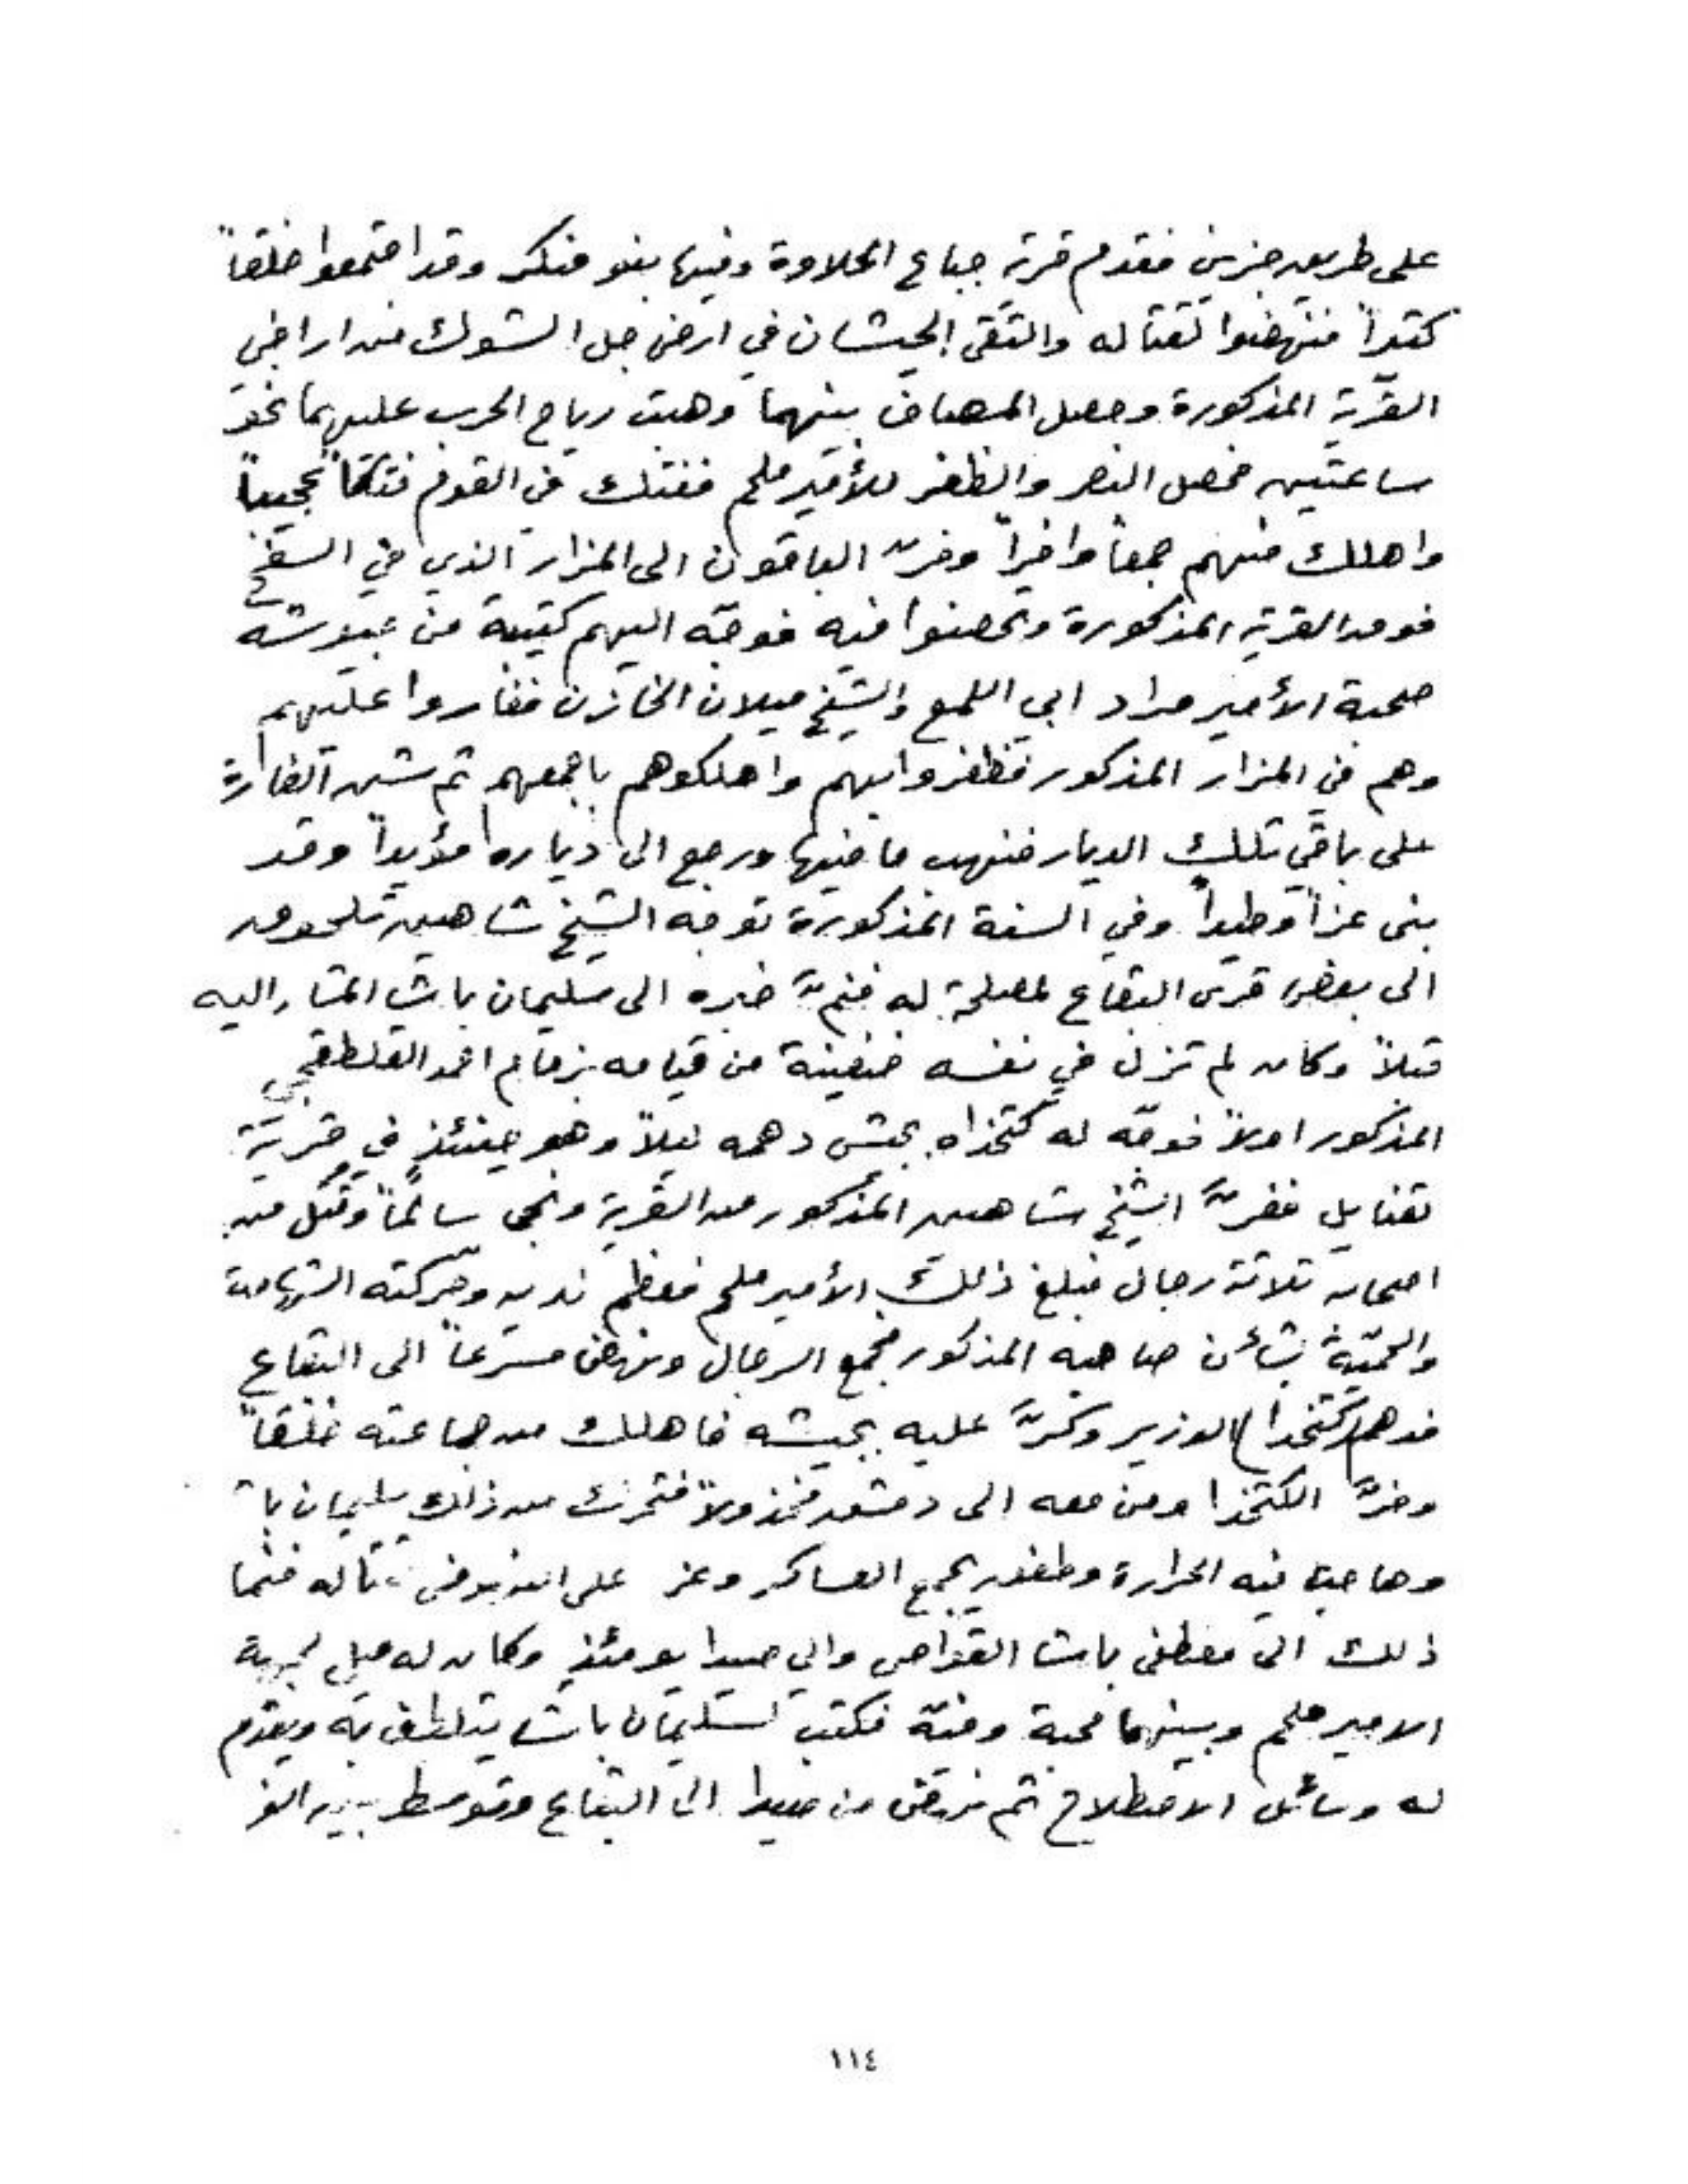 على طريق جزين فقدم قرية جباع الحلاوة وفيها بنو منكر وقد اجتمعوا خلقاً
كثيراً فنهضوا لقتاله والتقى الجيشان في ارض جل الشوك من اراضي
القرية المذكورة وحصل المصاف بينهما وهبت رياح الحرب عليهما نحو
ساعتين فحصل النصر والظفر للأمير ملحم ففتك في القوم فتكاً عجيباً
واهلك منهم جمعاً وافراً وفرّ الباقون الى المزار الذي في السفح
فوق القرية المذكورة وتحصنوا فيه فوجّه اليهم كتيبة من جيوشه
صحبة الأمير مراد ابي اللمع والشيخ ميلان الخازن فغاروا عليهم
وهم في المزار المذكور فظفروا بهم واهلكوهم باجمعهم ثم شن الغارة
على باقي تلك الديار فنهب ما فيها ورجع الى دياره مؤيداً وقد
بنى عزاً وطيداً وفي السنة المذكورة توجه الشيخ شاهين تلحوق
الى بعض قرى البقاع لمصلحة له فنمّ خبره الى سليمان باشا المشار اليه
قبلاً وكان لم تزل في نفسه ضغينة من قيامه بزمام احمد القلطقجي
المذكور اولاً فوجّه له كتخذاه بجيش دهمه ليلاً وهو حينئذٍ في قرية
تعنايل ففرّ الشيخ شاهين المذكور من القرية ونجى سالماً وقُتل من
اصحابه ثلاثة رجال فبلغ ذلك الأمير ملحم فعظم لديه وحركته الشهامة
والحميّة بشأن صاحبه المذكور فجمع الرجال ونهض مسرعاً الى البقاع
فدهم كتخدا الوزير وكرّ عليه بجيشه فاهلك من جماعته خلقاً
وفرّ الكتخذا ومن معه الى دمشق مخذولاً فتحرك من ذلك سليمان باشا
وهاجت فيه الحرارة وطفق يجمع العساكر وعز على النهوض لقتاله فنما
ذلك الى مصطفى باشا القواص والي صيدا يومئذٍ وكان له ميل لجهة
الامير ملحم وبينهما محبة ومنّة فكتب لسليمان باشا يتلطف به ويقدم
له وسائل الاصطلاح ثم نهض من صيدا الى البقاع وتوسط بين
١١٤